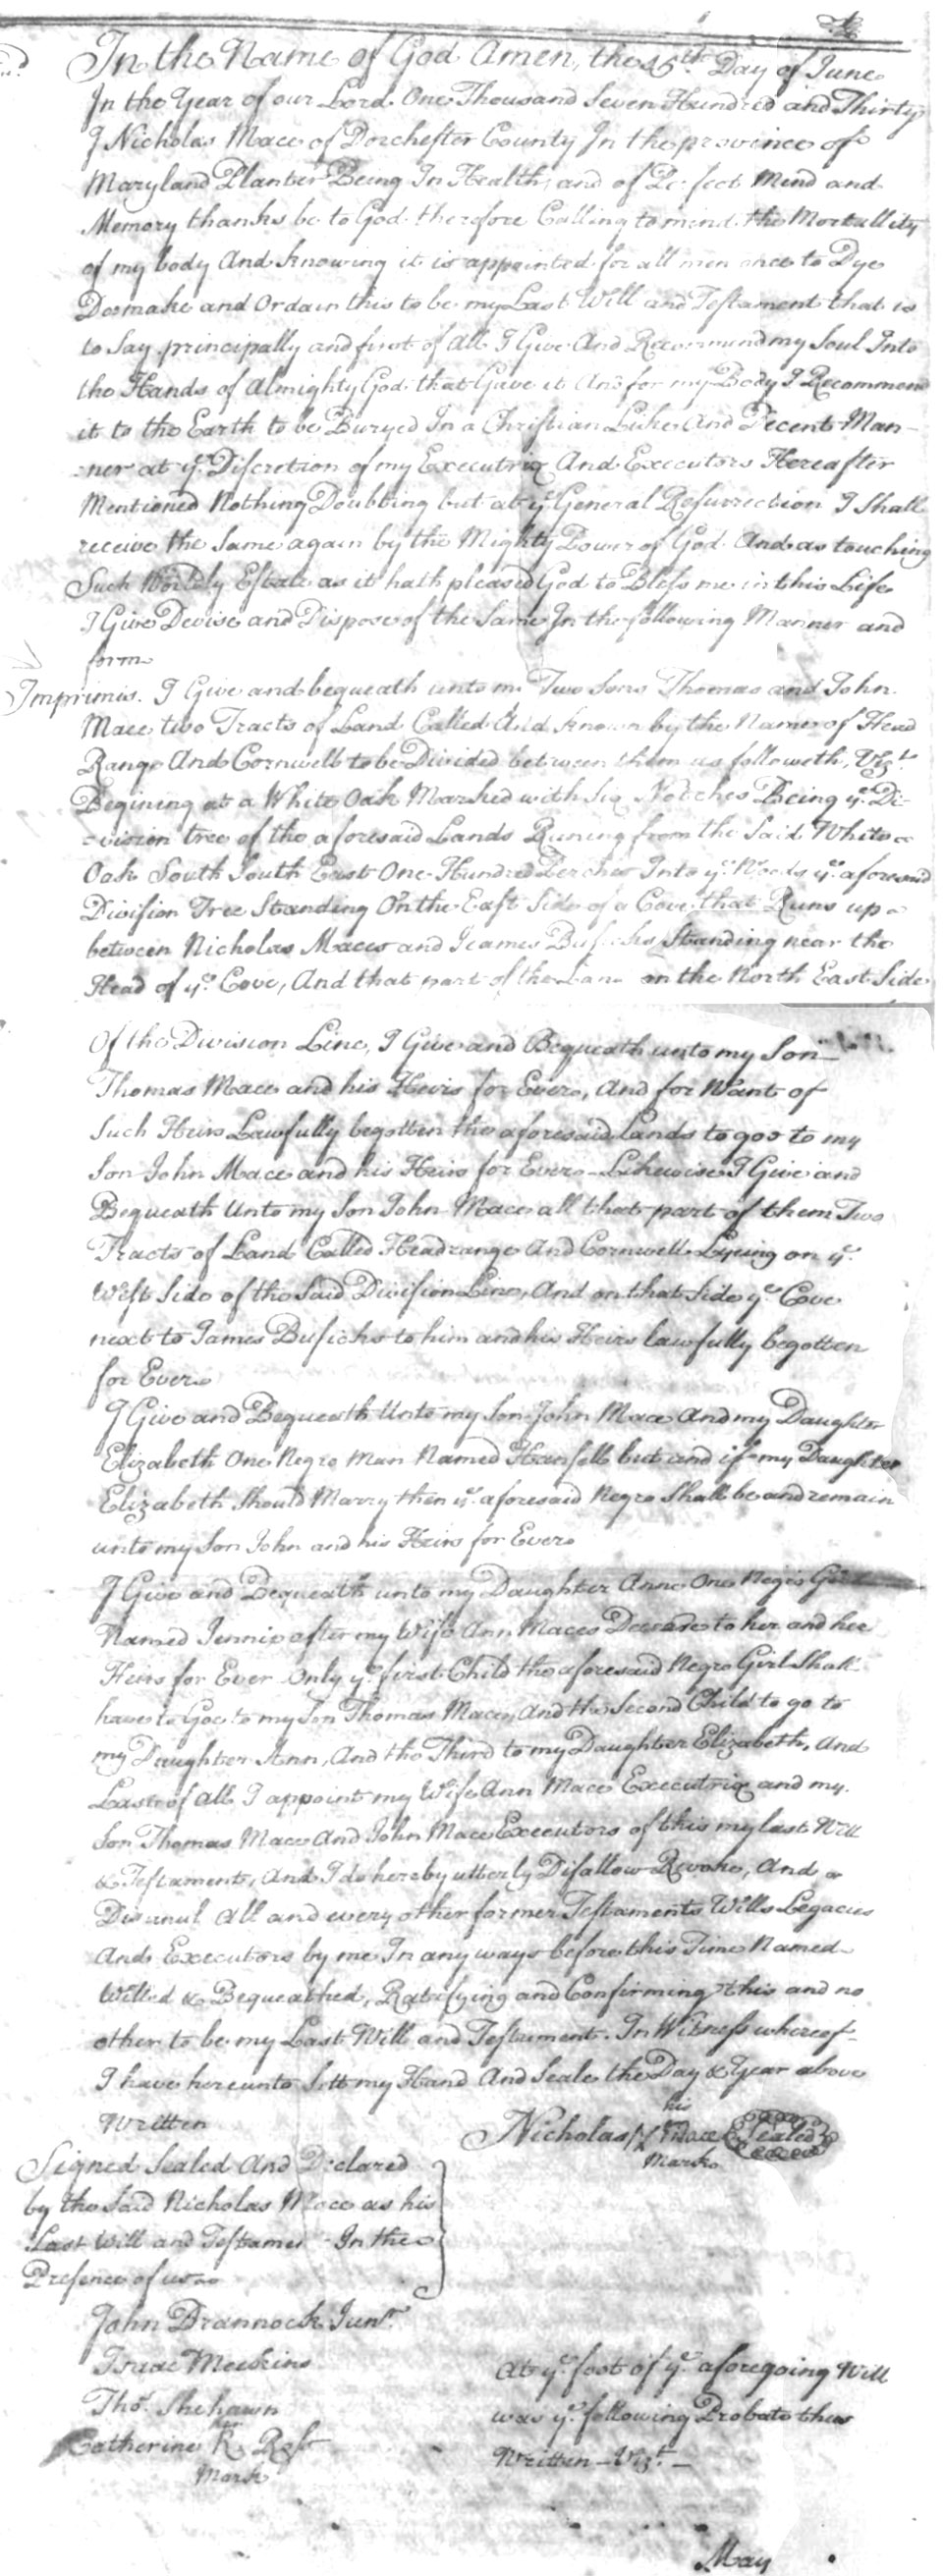 In the Name of God Amen, the 15th Day of June
In the Year of our Lord One Thousand Seven Hundred and Thirty
I Nicholas Mace of Dorchester County In the province of
Maryland Planter Being In Health and of Perfect Mind and
Memory thanks be to God therefore Calling to mind the Mortallity
of my body And knowing it is appointed for all men once to Dye
Do make and Ordain this to be my Last Will and Testament that is
to Say principally and first of all I Give And Recommend my Soul Into
the Hands of Almighty God that Gave it And for my Body I Recommend
it to the Earth to be Buryed In a Christian Like And Decent Man-
-ner at ye Discretion of my Executrix And Executors Hereafter
Mentioned Nothing Doubting but at ye General Resurrection I Shall
receive the Same again by the Mighty Power of God And as touching
Such Worldly Estate as it hath pleased God to Bless me in this Life
I Give Devise and Dispose of the Same In the following Manner and
form
Imprimis. I Give and bequeath unto my Two Sons Thomas and John
Mace two Tracts of Land Called And known by the Names of Head
Range And Cornwell to be Divided between them as followeth, Vizt.
Begining at a White Oak Marked with Six Notches Being ye Di-
-vision tree of the aforesaid Lands Runing from the Said White
Oak South South East One Hundred Perches Into ye Woods ye aforesaid
Division Tree Standing On the East Side of a Cove that Runs up
between Nicholas Maces and Jeames Busicks Standing near the
Head of ye Cove, And that part of the Land on the North East Side
Of the Division Line, I Give and Bequeath unto my Son
Thomas Mace and his Heirs for Ever, And for Want of
Such Heirs Lawfully begotten the aforesaid Lands to goe to my
Son John Mace and his Heirs for Ever - Likewise I Give and
Bequeath Unto my Son John Mace all that part of them Two
Tracts of Land Called Headrange And Cornwell Lyeing on ye
West Side of the Said Division Line, And on that Side ye Cove
next to James Busicks to him and his Heirs lawfully begotten
for Ever
I Give and Bequeath Unto my Son John Mace And my Daughter
Elizabeth One Negro Man Named Hansell but and if my Daughter
Elizabeth Should Marry then ye aforesaid Negro Shall be and remain
unto my Son John and his Heirs for Ever
I Give and Bequeath unto my Daughter Anne One Negro Girl
Named Jennie after my Wife Ann Maces Decease to her and her
Heirs for Ever Only ye first Child the aforesaid Negro Girl Shall
have to Goe to my Son Thomas Mace, And the Second Child to go to
my Daughter Ann, And the Third to my Daughter Elizabeth, And
Last of all I appoint my Wife Ann Mace Executrix and my
Son Thomas Mace And John Mace Executors of this my last Will
& Testament, And I do hereby utterly Disallow Revoke, And
Disanul All and every other former Testaments Wills Legacies
And Executors by me In any ways before this Time Named
Willed & Bequeathed, Ratifying and Confirming this and no
other to be my Last Will and Testament. In Witness whereof
I have hereunto Sett my Hand And Seale the Day & Year above
Written
his
Nicholas Mace Sealed
Marke
Signed Sealed And Declared
by the Said Nicholas Mace as his
Last Will and Testament In the
Presence of us
John Brannock Junr.
Isaac Meekins
Thos. Shehawn
her
Catherine R Ross
Mark
At ye foot of ye aforegoing Will
was ye following Probate thus
Written - Vizt. -
May